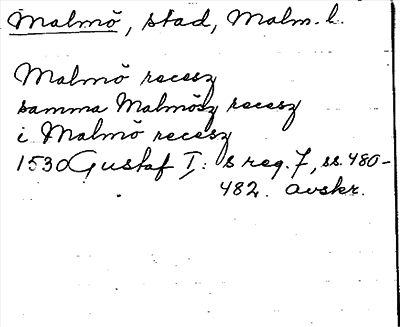 Malmö, stad, Malm. l.
Malmö recesz
samma Malmösz recesz
i Malmö recesz
1530 Gustaf I:s reg. 7, ss. 480-
482. avskr.